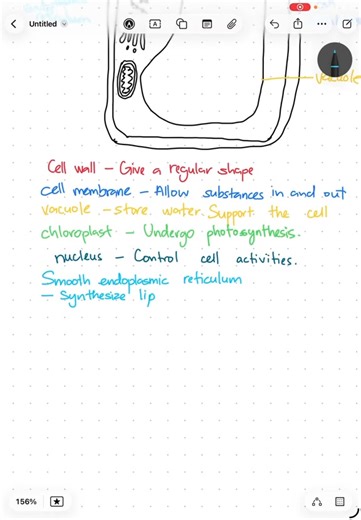 Untitled
vacuole
Cell wall - Give a regular shape
cell membrane - Allow substances in and out
vacuole - store water. Support the cell
chloroplast - Undergo photosynthesis.
nucleus - Control cell activities.
Smooth endoplasmic reticulum
- Synthesize lip
156%